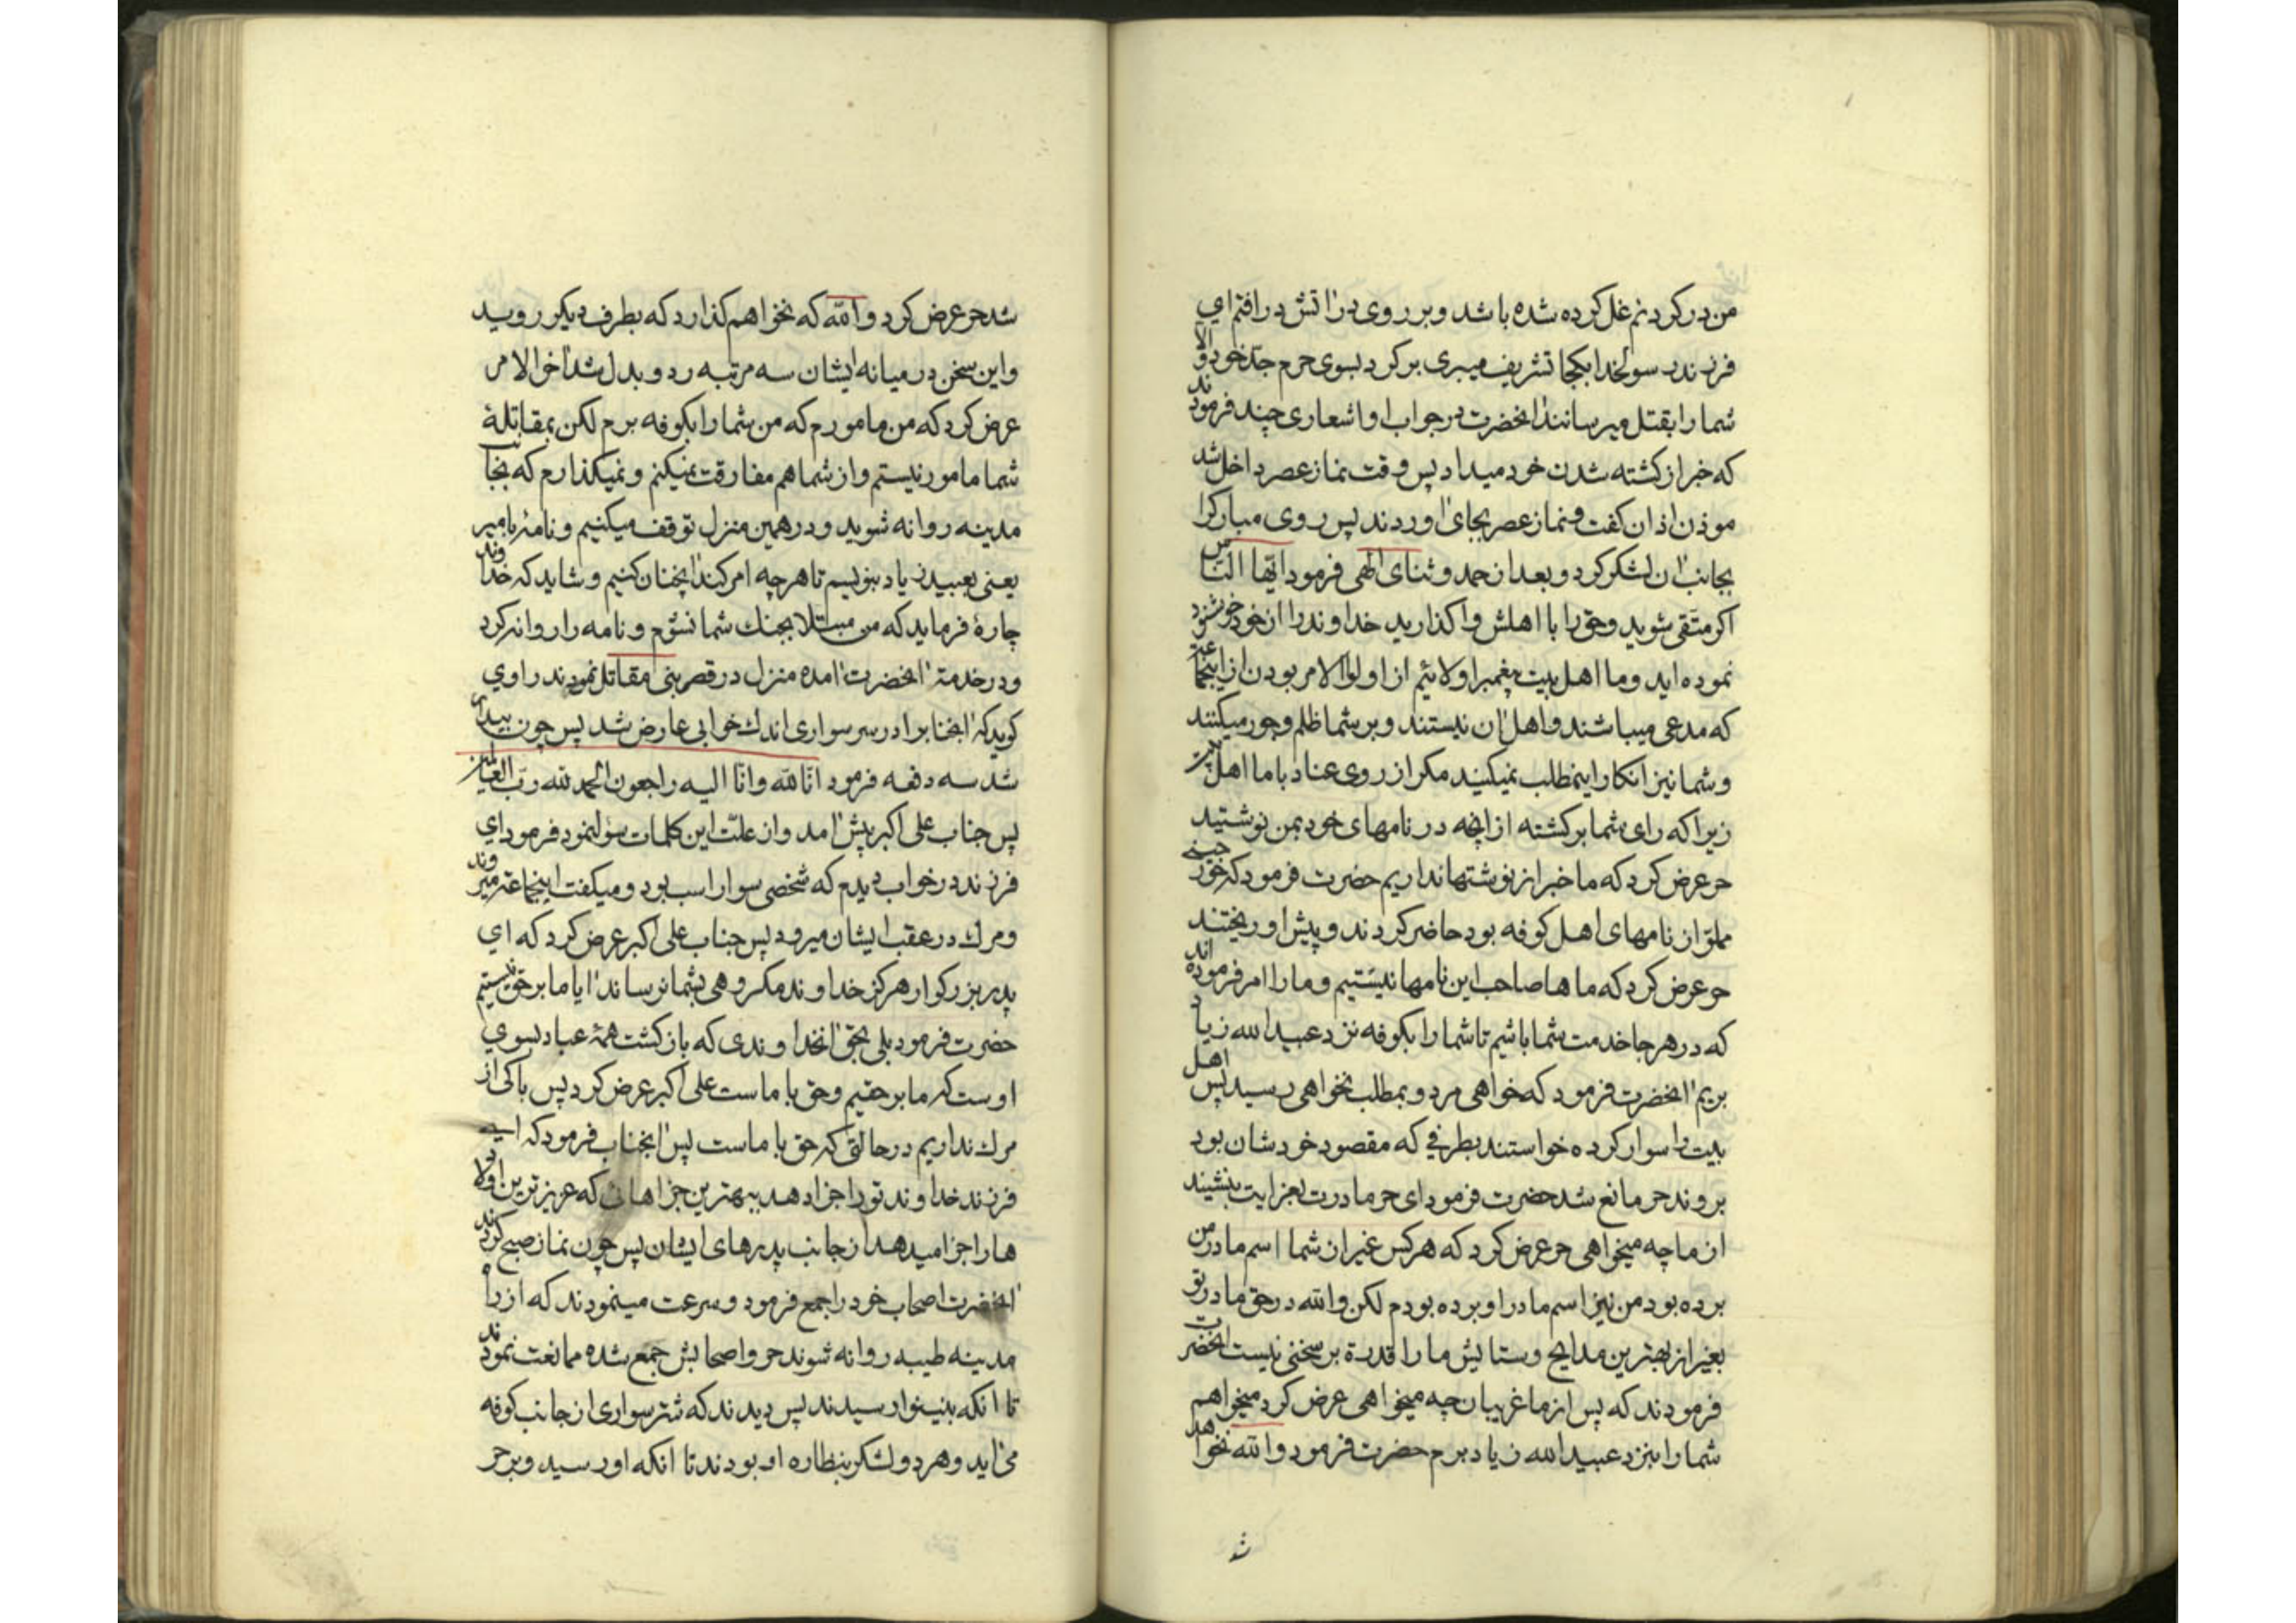 من در گردنم غل کرده شده باشد و بر روی در اتش در افتم ای
فرزند رسولخدا بکجا تشریف میبری برکرد بسوی حرم جد خود و الا
شما را بقتل میرسانند انحضرت در جواب او اشعاری چند فرمودند
که خبر از کشته شدن خود میداد پس وقت نماز عصر داخل شد
موذن اذان کفت و نماز عصر بجای اوردند پس روی مبارکرا
بجانب ان لشکر کرد و بعد از حمد و ثنای الهی فرمود ایّها النّاس
اکر متّقی شوید و حق را با اهلش واکذارید خداوند را از خود خوشنود
نموده اید و ما اهل بیت پیغمبر اولائیم از اولوالامر بودن از اینجماعت
که مدعی میباشند و اهل ان نیستند و بر شما ظلم و جور میکنند
و شما نیز انکار اینمطلب نمیکنید مکر از روی عناد با ما اهل بیت
زیرا که رای شما برکشته از انچه در نامهای خود بمن نوشتید
حر عرض کرد که ما خبر از نوشتها نداریم حضرت فرمود که خورجینی
مملو از نامهای اهل کوفه بود حاضر کردند و پیش او ریختند
حر عرض کرد که ماها صاحب این نامها نیستیم و ما را امر فرموده اند
که در هر جا خدمت شما باشیم تا شما را بکوفه نزد عبید الله زیاد
بریم انحضرت فرمود که خواهی مرد و بمطلب نخواهی رسید پس اهل
بیت را سوار کرده خواستند بطرفی که مقصود خودشان بود
بروند حر مانع شد حضرت فرمود ای حر مادرت بعزایت بنشیند
از ما چه میخواهی حر عرض کرد که هر کس غیر از شما اسم مادر من
برده بود من نیز اسم مادر او برده بودم لکن والله در حق مادر تو
بغیر از بهترین مدایح و ستایش ما را قدرة بر سخنی نیست انحضرت
فرمودند که پس از ما غریبان چه میخواهی عرض کرد میخواهم
شما را بنزد عبید الله زیاد برم حضرت فرمود والله نخواهد
شد
شد حر عرض کرد والله که نخواهم کذارد که بطرف دیکر روید
و این سخن در میانه ایشان سه مرتبه رد و بدل شد اخر الامر
عرض کرد که من مامورم که من شما را بکوفه برم لکن بمقاتلة
شما مامور نیستم و از شما هم مفارقت نمیکنم و نمیکذارم که بجا
مدینه روانه شوید و در همین منزل توقف میکنیم و نامهٔ بامیر
یعنی بعبید زیاد بنویسم تا هر چه امر کند انچنان کنیم و شاید که خداوند
چارهٔ فرماید که من مبتلا بجنك شما نشوم و نامه را روانه کرد
و در خدمة انحضرت امده منزل در قصر بنی مقاتل نمودند راوی
کوید که انجنابرا در سر سواری اندك خوابی عارض شد پس چون بیدار
شد سه دفعه فرمود انّا لله و انّا الیه راجعون الحمد لله ربّ العالمین
پس جناب علی اکبر پیش امد و از علّت این کلمات سؤال نمود فرمود ای
فرزند در خواب دیدم که شخصی سوار اسب بود و میکفت اینجماعة میروند
و مرك در عقب ایشان میرود پس جناب علی اکبر عرض کرد که ای
پدر بزرکوار هرکز خداوند مکروهی بشما نرساند ایا ما بر حق نیستیم
حضرت فرمود بلی بحق انخداوندی که بازکشت همهٔ عباد بسوی
اوست که ما بر حقیم و حق با ماست علی اکبر عرض کرد پس باکی از
مرك نداریم در حالتی که حق با ماست پس انجناب فرمود که ای
فرزند خداوند تو را جزا دهد ببهترین جزاهائی که عزیزترین اولاد
ها را جزا میدهد از جانب پدرهای ایشان پس چون نماز صبح کردند
انحضرت اصحاب خود را جمع فرمود و سرعت مینمودند که از راه
مدینه طیبه روانه شوند حر و اصحابش جمع شده ممانعت نمودند
تا انکه بنینوا رسیدند پس دیدند که شتر سواری از جانب کوفه
می اید و هر دو لشکر بنظاره او بودند تا انکه او رسید و بر حر